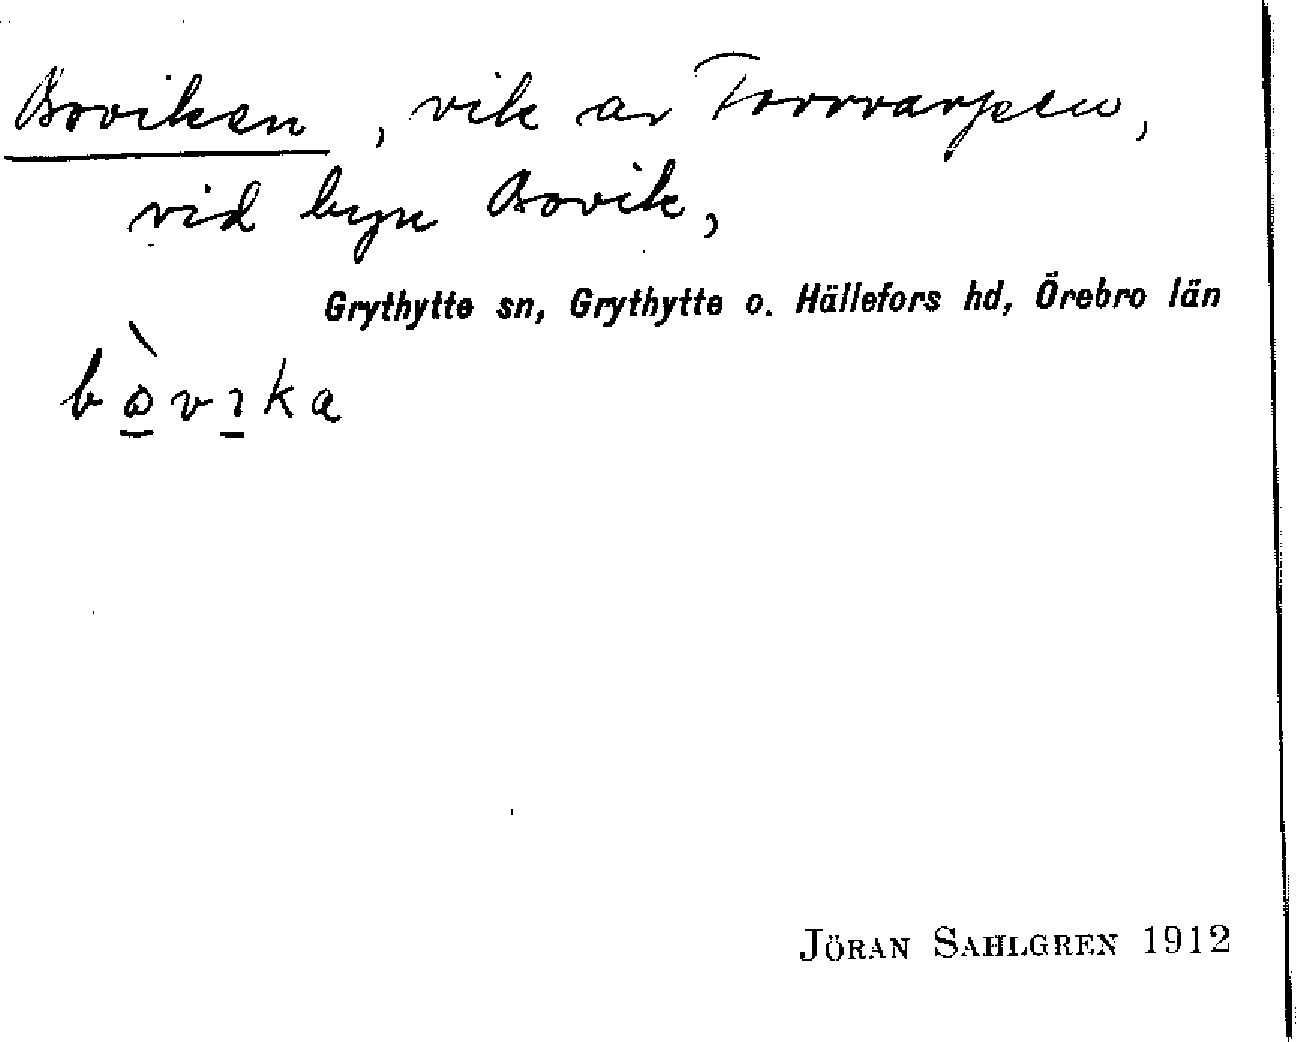 Boviken, vik av Torrvarpen,
vid byn Bovik,
Grythytte sn, Grythytte o. Hällefors hd, Örebro län
bòvıka
JÖRAN SAHLGREN 1912